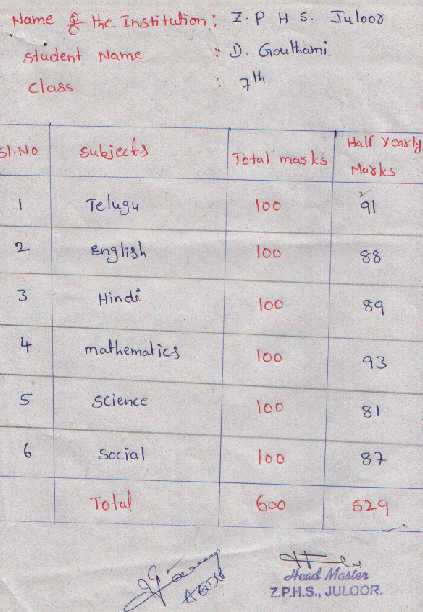 Name of the Institution: Z.P H S. Juloor
Student Name : D. Gouthami
Class : 7th
Sl.No Subjects Total marks Half Yearly Marks
1 Telugu 100 91
2 English 100 88
3 Hindi 100 89
4 mathematics 100 93
5 Science 100 81
6 Social 100 87
Total 600 529
Head Master
Z.P.H.S., JULOOR.